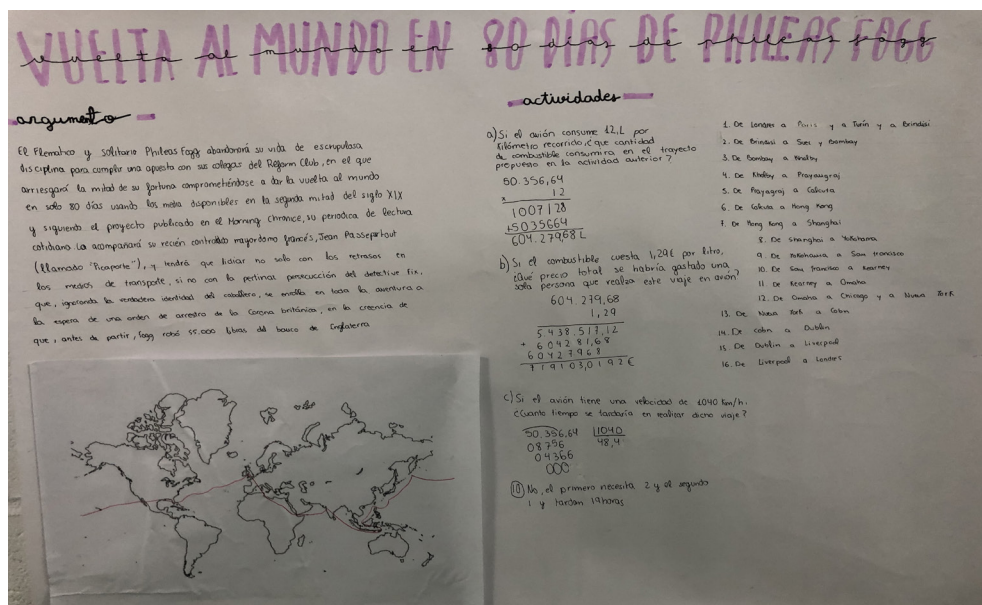 VUELTA AL MUNDO EN 80 DÍAS DE PHILEAS FOGG
vuelta al mundo en 80 días de phileas fogg
argumento
El Flematico y solitario Phileas Fogg abandonará su vida de escrupulosa
disciplina para cumplir una apuesta con sus colegas del Reform Club, en el que
arriesgará la mitad de su fortuna comprometiéndose a dar la vuelta al mundo
en solo 80 días usando los medios disponibles en la segunda mitad del siglo XIX
y siguiendo el proyecto publicado en el Morning chronice, su periodico de lectura
cotidiano. Lo acompañará su recien contratado mayordomo francés, Jean Passepartout
(llamado "Picaporte"), y tendrá que lidiar no solo con los retrasos en
los medios de transporte, si no con la pertinaz persecución del detective Fix,
que, ignorando la verdadera identidad del caballero, se enrolla en toda la aventura a
la espera de una orden de arresto de la Corona británica, en la creencia de
que, antes de partir, Fogg robó 55.000 libras del banco de Inglaterra
actividades
a) Si el avión consume 12,L por
kilómetro recorrido, ¿que cantidad
de combustible consumira en el trayecto
propuesto en la actividad anterior?
50.356,64
x 12
1007128
+5035664
604.279,68 L
b) Si el combustible cuesta 1,29€ por litro,
¿Qué precio total se habría gastado una
sola persona que realiza este viaje en avión?
604.279,68
1,29
5.438.517,12
+ 604281,68
6042796 8
719103,0192€
c) Si el avión tiene una velocidad de 1040 Km/h.
¿Cuanto tiempo se tardaría en realizar dicho viaje?
50.356,64 11040
08756 48,4
04366
000
10) No, el primero necesita 2 y el segundo
1 y tardan 19horas
1. De Londres a Paris y a Turín y a Brindisi
2. De Brindisi a Suez y Bombay
3. De Bombay a Kholby
4. De Kholby a Prayaugraj
5. De Prayagraj a Calcuta
6. De Calcuta a Hong Kong
7. De Hong Kong a Shanghai
8. De Shanghai a Yokohama
9. De Yokohaura a San francisco
10. De San francisco a Kearney
11. De Kearney a Omaha
12. De Omaha a Chicago y a Nueva York
13. De Nueva York a Cobn
14. De cobn a Dublin
15. De Dublin a Liverpool
16. De Liverpool a Londres